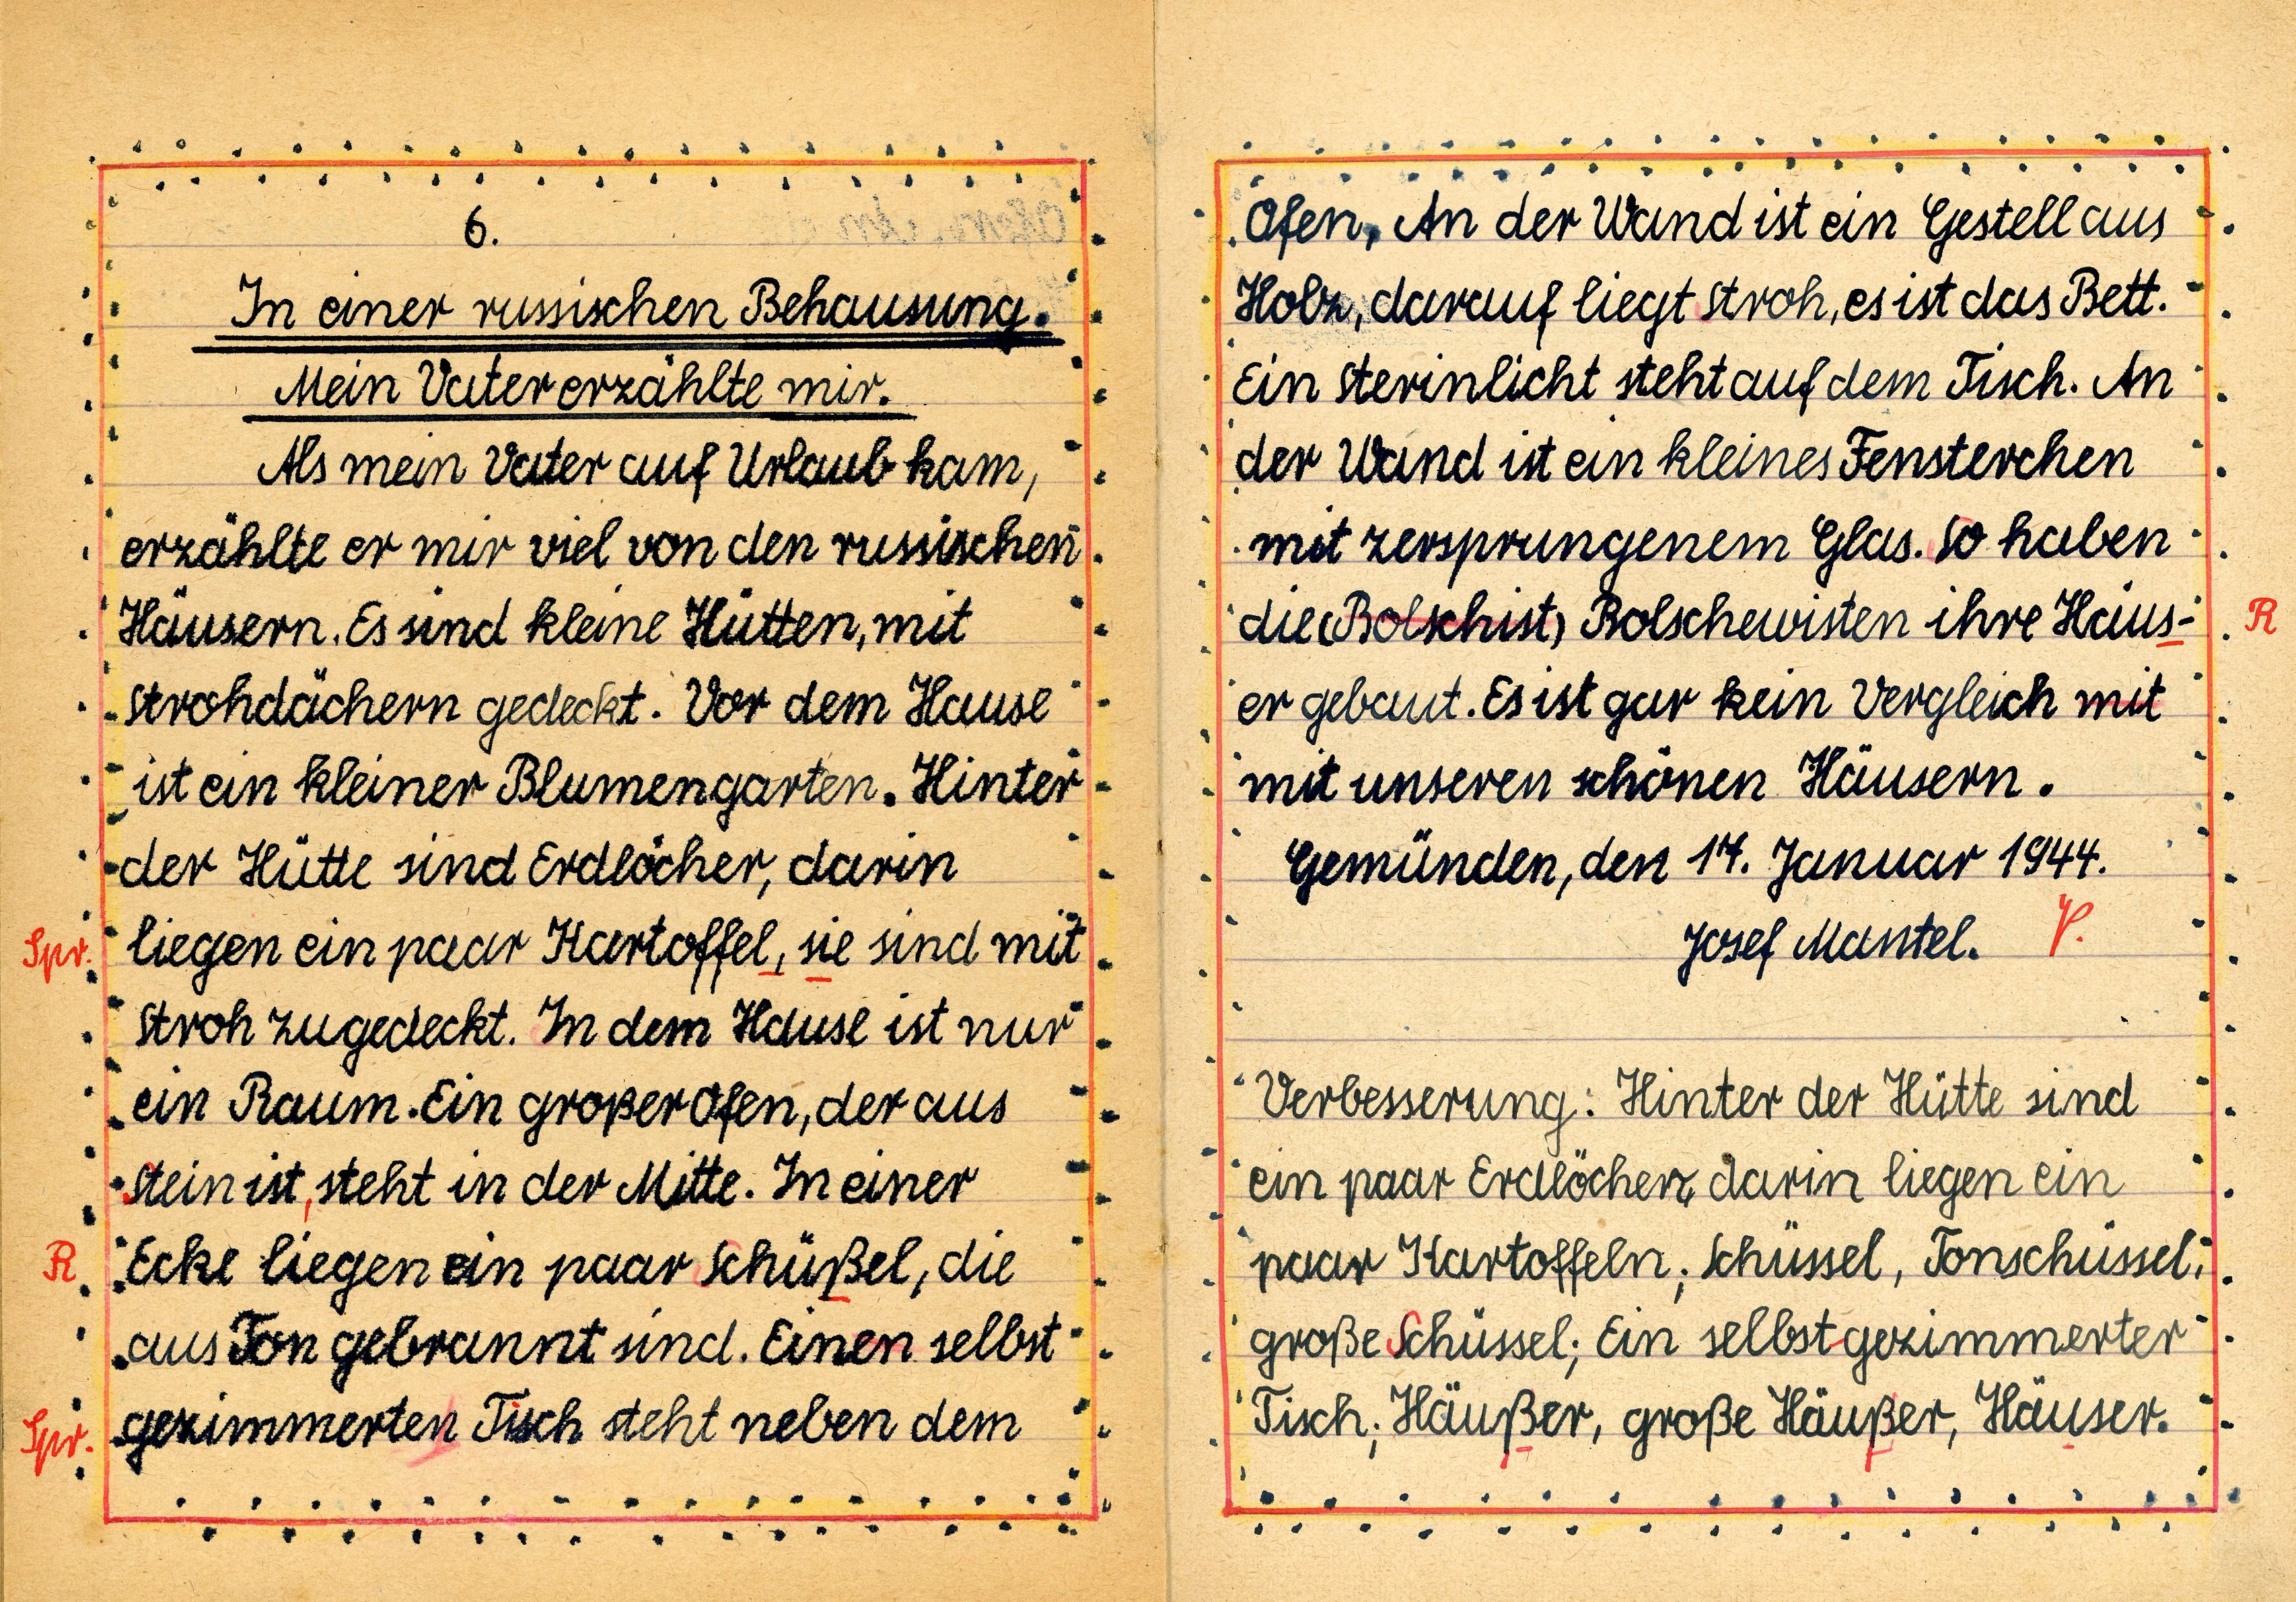 6.
In einer russischen Behausung.
Mein Vater erzählte mir.
Als mein Vater auf Urlaub kam,
erzählte er mir viel von den russischen
Häusern. Es sind kleine Hütten, mit
Strohdächern gedeckt. Vor dem Hause
ist ein kleiner Blumengarten. Hinter
der Hütte sind Erdlöcher, darin
Spr. liegen ein paar Kartoffel, sie sind mit
Stroh zugedeckt. In dem Hause ist nur
ein Raum. Ein großer Ofen, der aus
Stein ist, steht in der Mitte. In einer
R Ecke liegen ein paar Schüßel, die
aus Ton gebrannt sind. Einen selbst
Spr. gezimmerten Tisch steht neben dem
Ofen, An der Wand ist ein Gestell aus
Holz, darauf liegt Stroh, es ist das Bett.
Ein Sterinlicht steht auf dem Tisch. An
der Wand ist ein kleines Fensterchen
mit zersprungenem Glas. So haben
die (Bolschist) Bolschewisten ihre Häus- R
er gebaut. Es ist gar kein Vergleich mit
mit unseren schönen Häusern.
Gemünden, den 17. Januar 1944.
Josef Mantel.
Verbesserung: Hinter der Hütte sind
ein paar Erdlöcher, darin liegen ein
paar Kartoffeln; Schüssel, Tonschüssel;
große Schüssel; Ein selbst gezimmerter
Tisch; Häußer, große Häußer, Häuser.